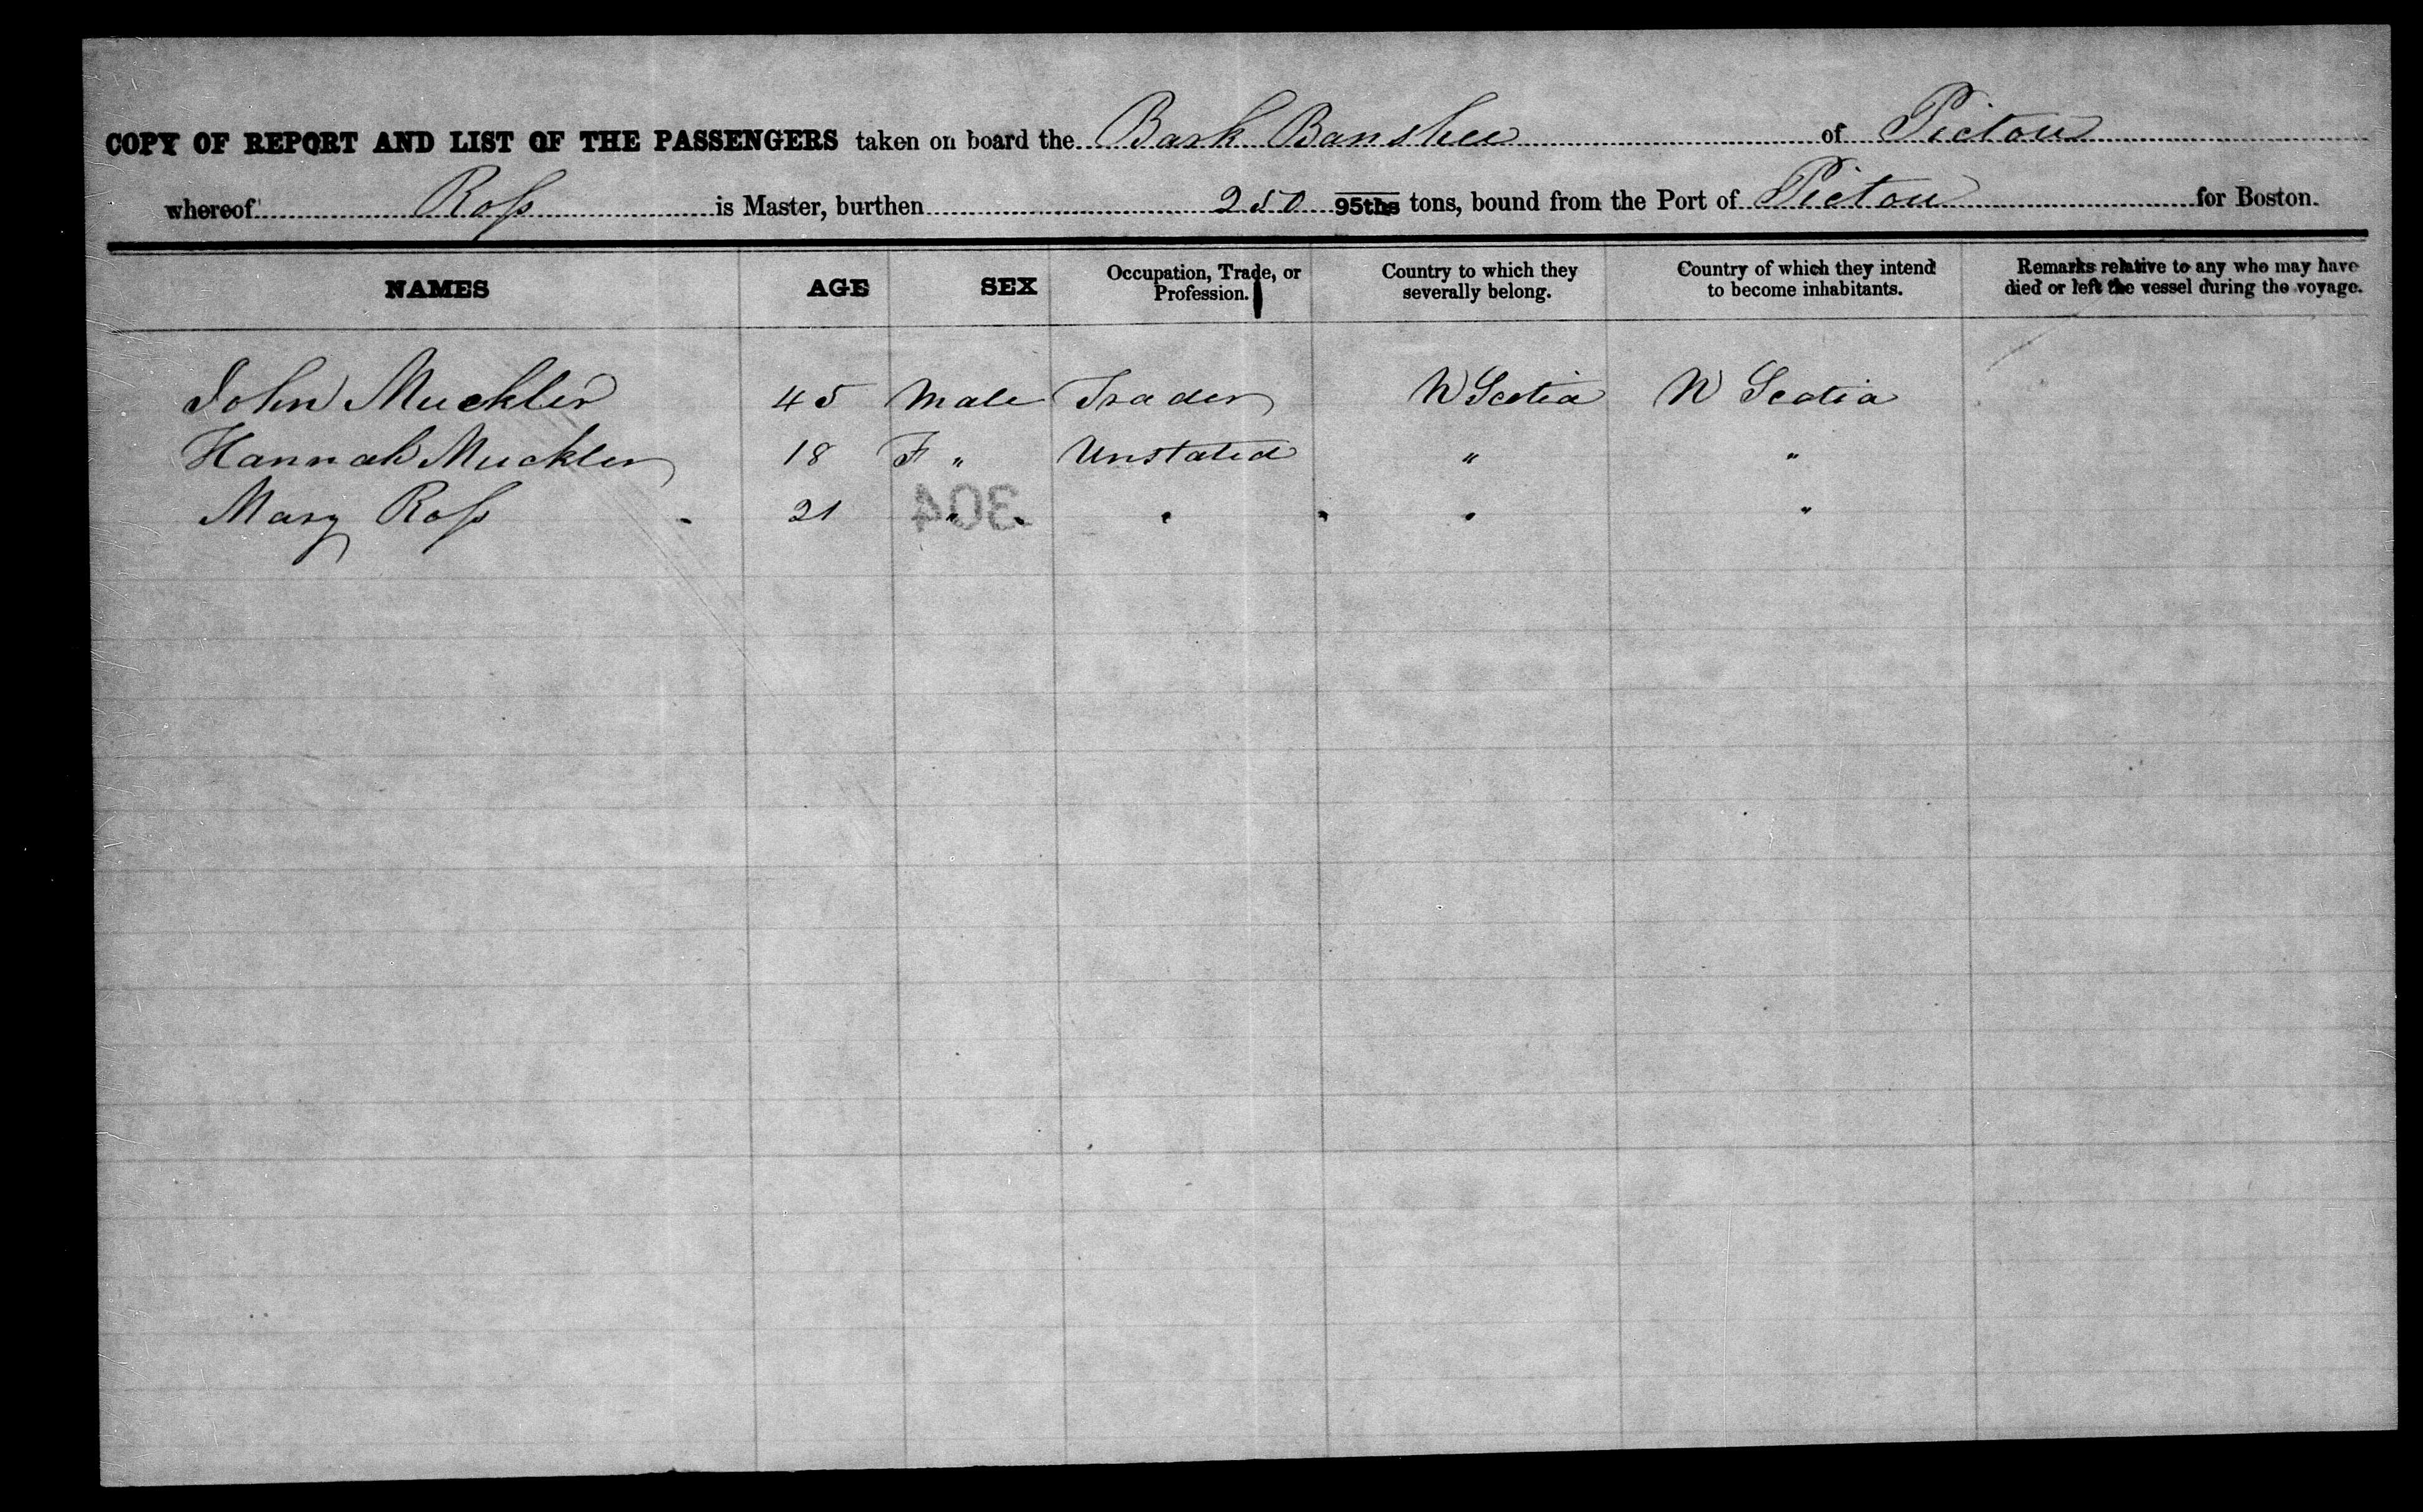 COPY OF REPORT AND LIST OF THE PASSENGERS taken on board the Bark Banshee of Pictou
whereof Ross is Master, burthen 250 95ths tons, bound from the Port of Pictou for Boston.
NAMES AGE SEX Occupation, Trade, or Profession. Country to which they severally belong. Country of which they intend to become inhabitants. Remarks relative to any who may have died or left the vessel during the voyage.
John Muckler 45 Male Trader N Scotia N Scotia
Hannah Muckler 18 F " Unstated " "
Mary Ross 21 " " " " "
304